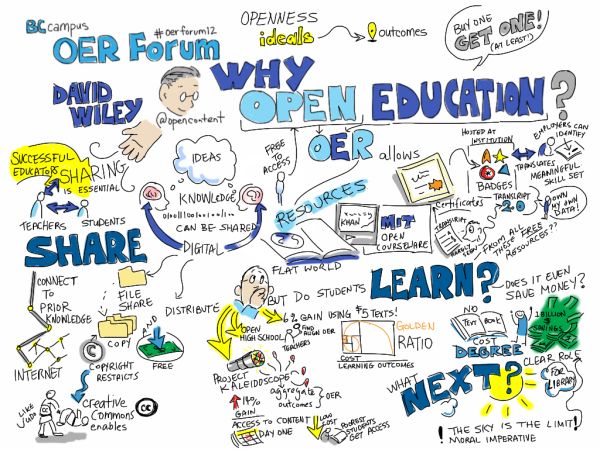 BCcampus
OER Forum
#oerforum12
OPENNESS
ideals
outcomes
BUY ONE
GET ONE!
(AT LEAST!)
DAVID
WILEY
@opencontent
WHY
OPEN EDUCATION?
FREE
TO
ACCESS
OER
allows
HOSTED AT
INSTITUTION
BADGES
EMPLOYERS CAN
IDENTIFY
TRANSLATES
MEANINGFUL
SKILL SET
TRANSCRIPT
2.0
OWN
MY OWN
DATA!
Certificates
TRANSCRIPT
FROM ALL
THESE FREE
RESOURCES??
SUCCESSFUL
EDUCATORS
SHARING
IS ESSENTIAL
TEACHERS
STUDENTS
IDEAS
KNOWLEDGE
CAN BE SHARED
DIGITAL
RESOURCES
FLAT WORLD
KHAN
MIT
OPEN
COURSEWARE
SHARE
CONNECT
TO
PRIOR
KNOWLEDGE
INTERNET
FILE
SHARE
COPY
DISTRIBUTE
AND
FREE
©
COPYRIGHT
RESTRICTS
LIKE
JUDO
Creative
Commons
enables
cc
BUT DO STUDENTS
LEARN?
OPEN
HIGH SCHOOL
6% GAIN USING $5 TEXTS!
TEACHERS
PROJECT
KALEIDOSCOPE
aggregate
outcomes
OER
14%
GAIN
ACCESS TO CONTENT
DAY ONE
LOW
COST
POOREST
STUDENTS
GET ACCESS
GOLDEN
RATIO
COST
LEARNING OUTCOMES
DOES IT EVEN
SAVE MONEY?
NO
TEXT BOOK
COST
DEGREE
1 BILLION
$
SAVINGS
CLEAR ROLE
FOR
LIBRARY
WHAT
NEXT?
! THE SKY IS THE LIMIT!
MORAL IMPERATIVE